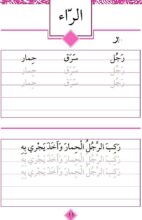 الرّاء
رَجُل سَرَقَ حِمار
رَجُل سَرَقَ حِمار
رَجُل سَرَقَ حِمار
رَكِبَ الرَّجُلُ الْحِمارَ وَأَخَذَ يَجْري بِهِ
رَكِبَ الرَّجُلُ الْحِمارَ وَأَخَذَ يَجْري بِهِ